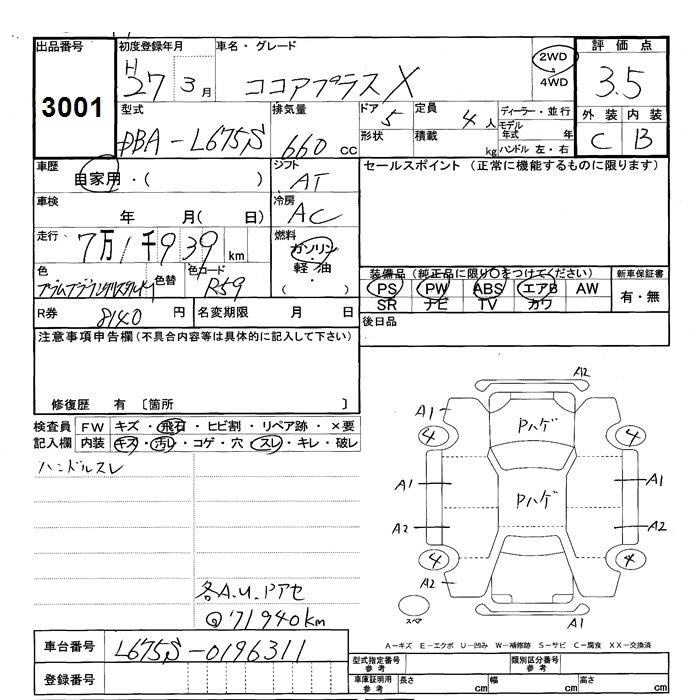 出品番号
3001
初度登録年月
H
27年 3月
車名・グレード
ココアプラスX
2WD
4WD
評価点
3.5
外装 内装
C B
型式
DBA-L675S
排気量
660 cc
ドア
5
形状
定員
4人
積載 kg
ディーラー・並行
モデル年式 年
ハンドル 左・右
車歴
自家用・( )
シフト
AT
セールスポイント (正常に機能するものに限ります)
車検
年 月( 日)
冷房
AC
走行
7万1千939km
燃料
ガソリン
軽・油
( )
色
色替
色コード
R59
装備品(純正品に限り○をつけてください)
PS PW ABS エアB AW
SR ナビ TV カワ
新車保証書
有・無
R券 8140円
名変期限 月 日
後日品
注意事項申告欄(不具合内容等は具体的に記入して下さい)
修復歴 有 〔箇所 〕
検査員記入欄
FW キズ・飛石・ヒビ割・リペア跡・×要
内装 キズ・汚レ・コゲ・穴・スレ・キレ・破レ
ハンドルスレ
各A.U.Pアセ
@71940km
A2
A1
Pハゲ
4 4
A1 A1
Pハゲ
A2 A2
4 4
A2
スペア
A1
A-キズ E-エクボ U-凹み W-補修跡 S-サビ C-腐食 XX-交換済
車台番号
L675S-0196311
登録番号
型式指定番号 参考
類別区分番号 参考
車庫証明用 参考
長さ cm
幅 cm
高さ cm